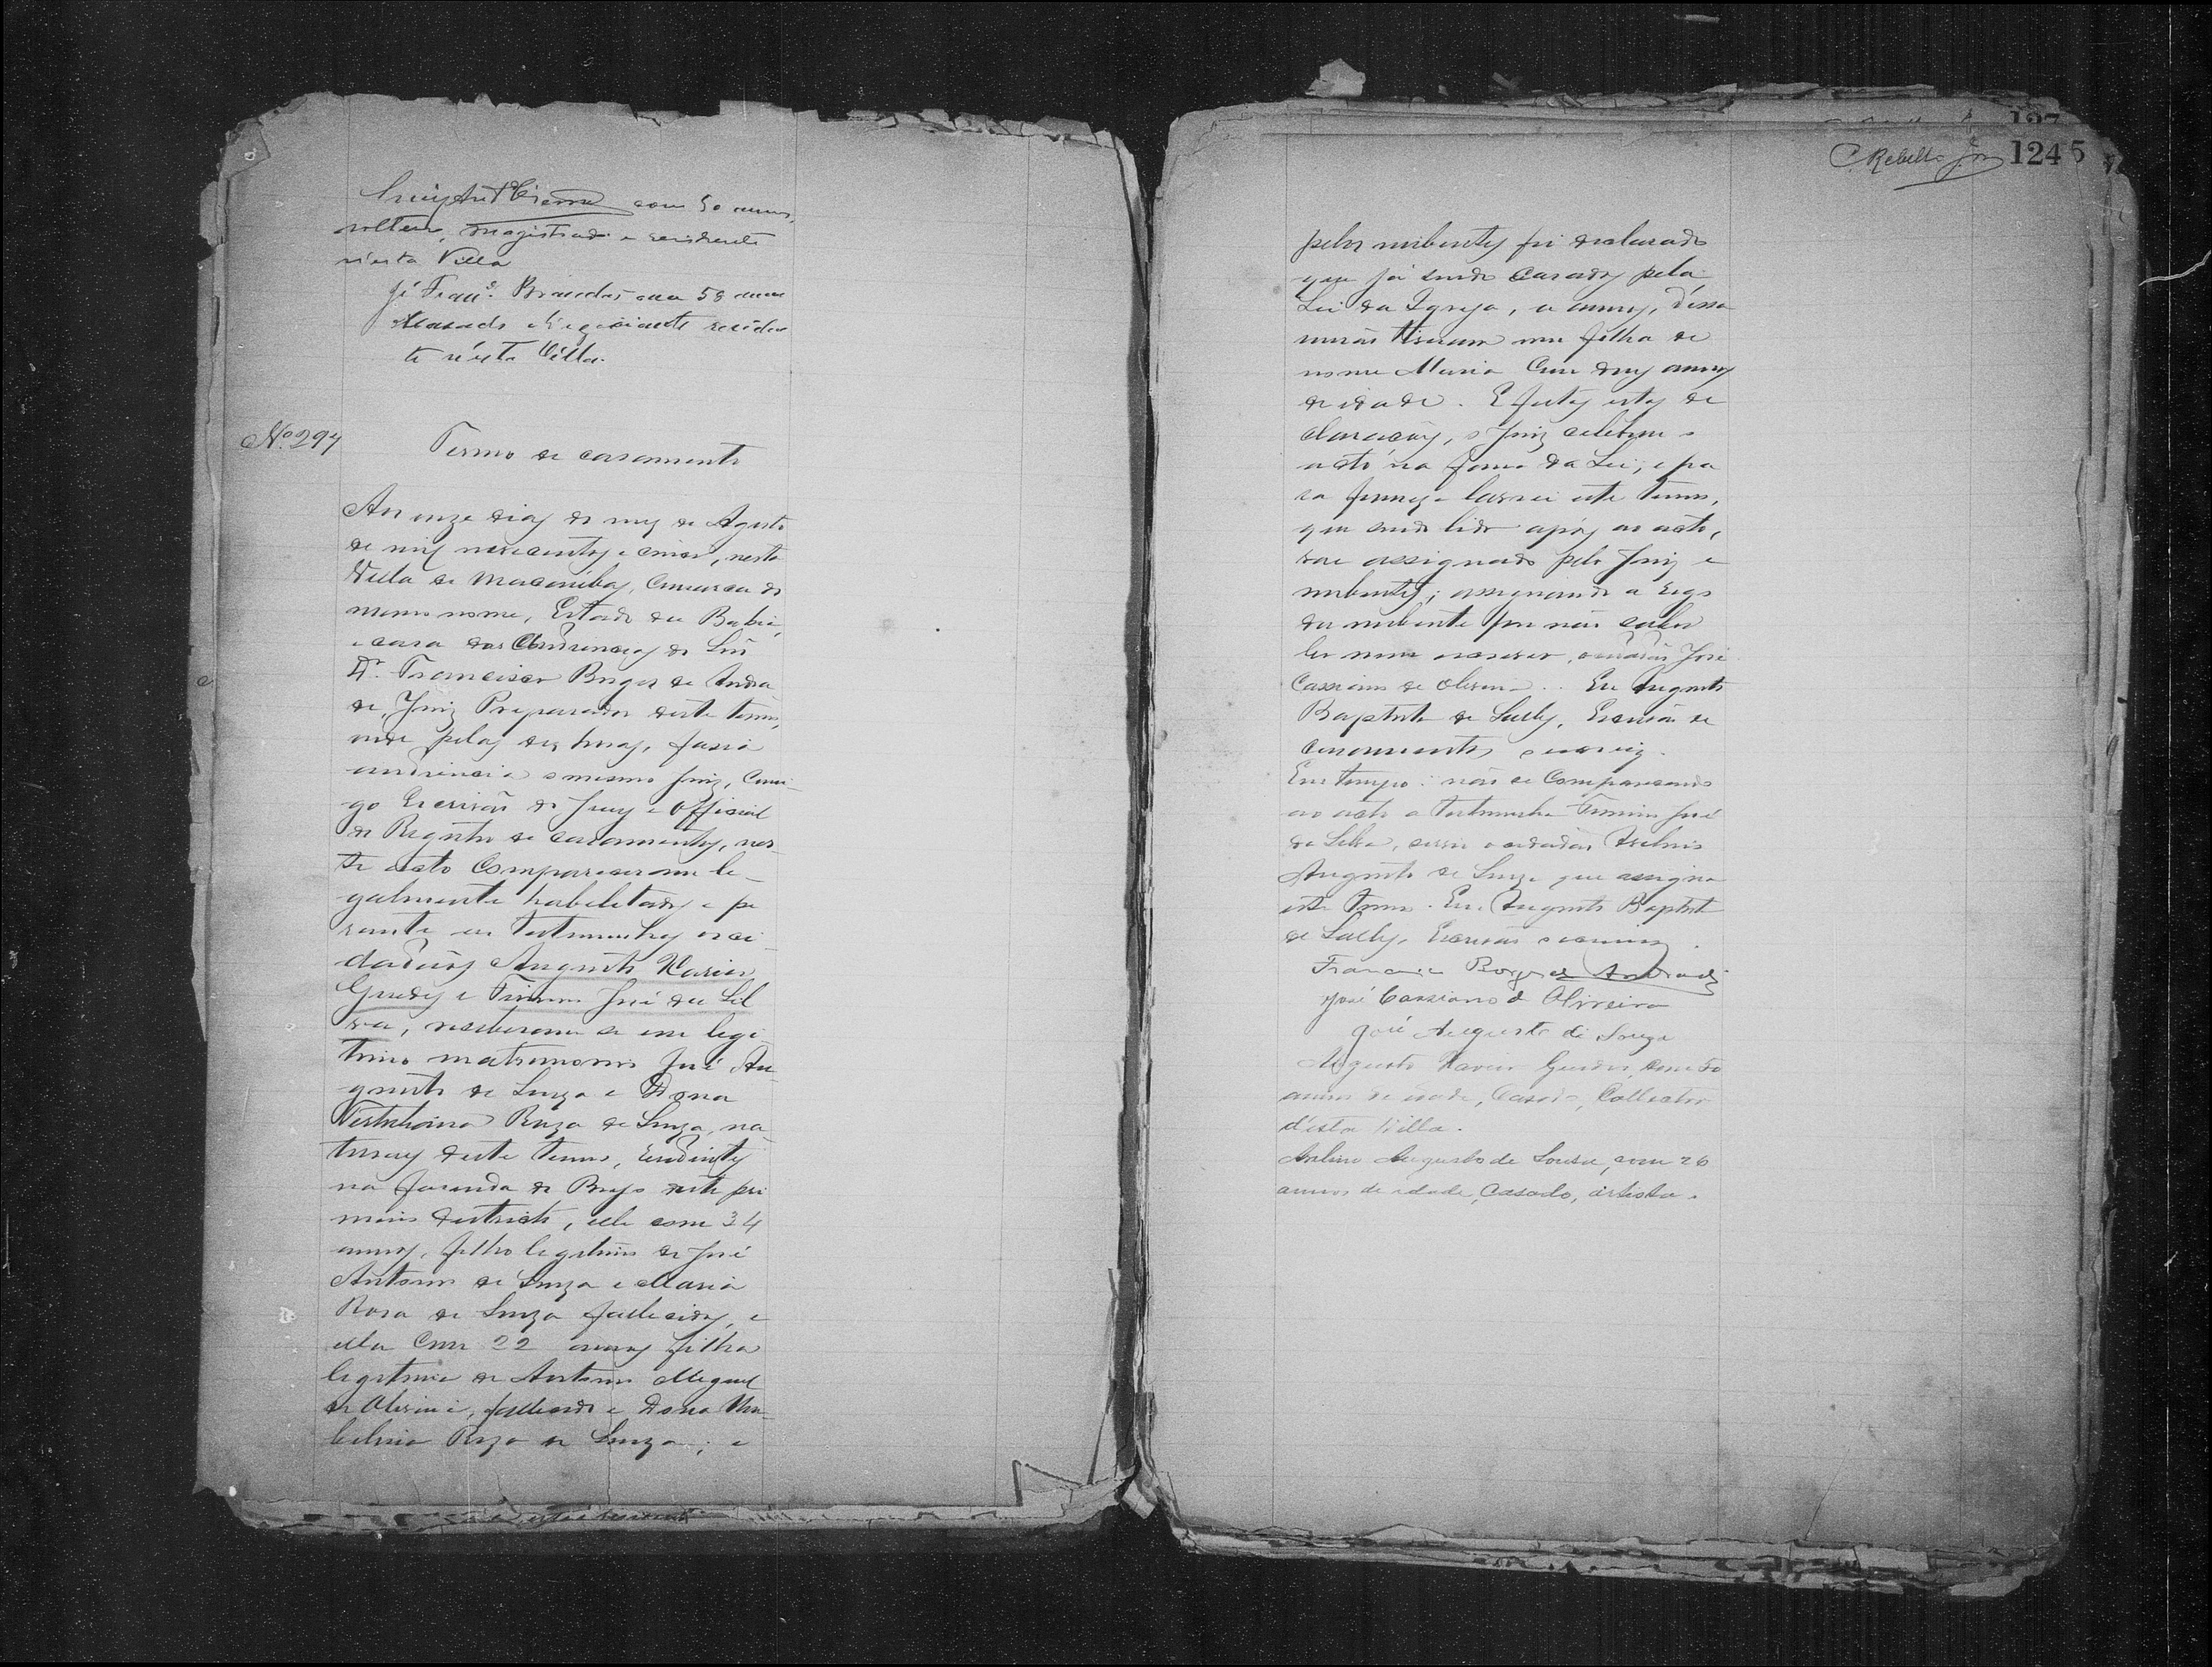 com 50 annos,
solteiro, magistrado e residente
n'esta Villa
Jé Franco. Brandão com 58 annos
Casado e Negociante residen
te n'esta Villa.
No. 297
Termo de casamento
Aos onze dias do mez de Agosto
de mil novecentos e cinco, nesta
Villa de Macaúbas, Comarca do
mesmo nome, Estado da Bahia,
e casa das Audiencias do
Dr. Francisco Borges de Andra
de, Juiz Preparador deste termo,
onde pelas dez horas, fasia
audiencia o mesmo Juiz, Comi-
go Escrivão do Jury e Official
do Registro de casamentos, nes-
te acto Compareceram le-
galmente habeletados e pe
rante as testemunhas os ci
dadãos Augusto Xavier
Guedes e Firmino José da Sil
va, receberam-se em legi
timo matrimonio José Au-
gusto de Souza e Dona
Roza de Souza, na
turaes deste termo, residentes
na fasenda do Brejo deste pri
meiro destricto, elle com 34
annos, filho legitimo de José
Antonio de Souza e Maria
Rosa de Souza fallecidos, e
ella com 22 annos filha
legitima de Antonio Miguel
de Oliveira, fallecido e Dona Um-
belina Roza de Souza; e
C. Rebello Jor
1245
127
pelos nubentes foi declarado
que já sendo casados pela
Lei da Igreja, a annos, dessa
união tiveram uma filha de
nome Maria com dous annos
de idade. E feitas estas de
clarações, o Juiz celebrou o
acto na forma da Lei, e pa
ra firmeza lavrei este termo,
que sendo lido após ao acto,
vae assignado pelo Juiz e
nubentes; assignando a rogo
da nubente por não saber
ler nem escrever, o cidadão José
Cassiano de Oliveira. Eu Augusto
Baptista de Lully, Escrivão de
casamentos, escrevi.
Em tempo: não se Comparecendo
ao acto a testemunha Firmino José
da Silva, servio o cidadão Avelino
Augusto de Souza que assigna
este termo. Eu, Augusto Baptista
de Lully, Escrivão o escrevi.
Francisco Borges de Andrade
José Cassiano de Oliveira
José Augusto de Souza
Augusto Xavier Guedes, com 50
annos de idade, Casado, Collector
d'esta Villa.
Avelino Augusto de Souza, com 26
annos de idade, Casado, artista.